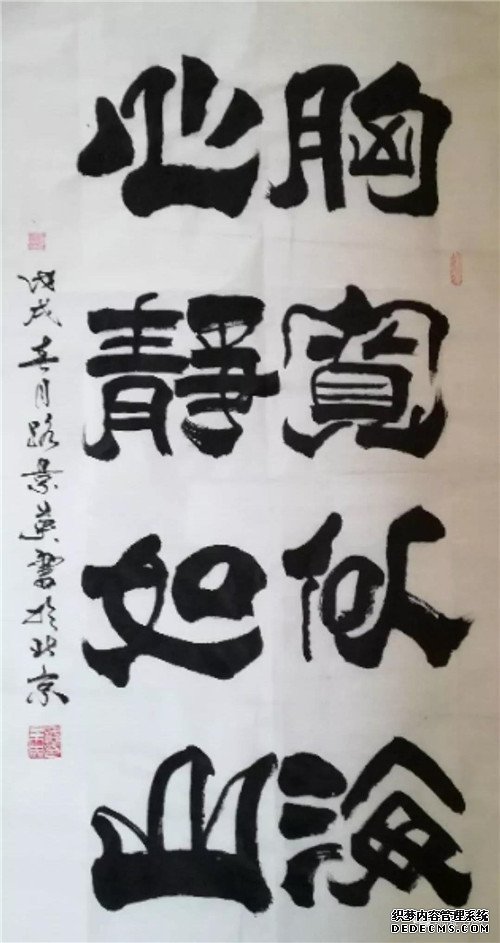 胸寬似海
心靜如山
戊戌春月路景英書於北京
织梦内容管理系统
DEDECMS.COM